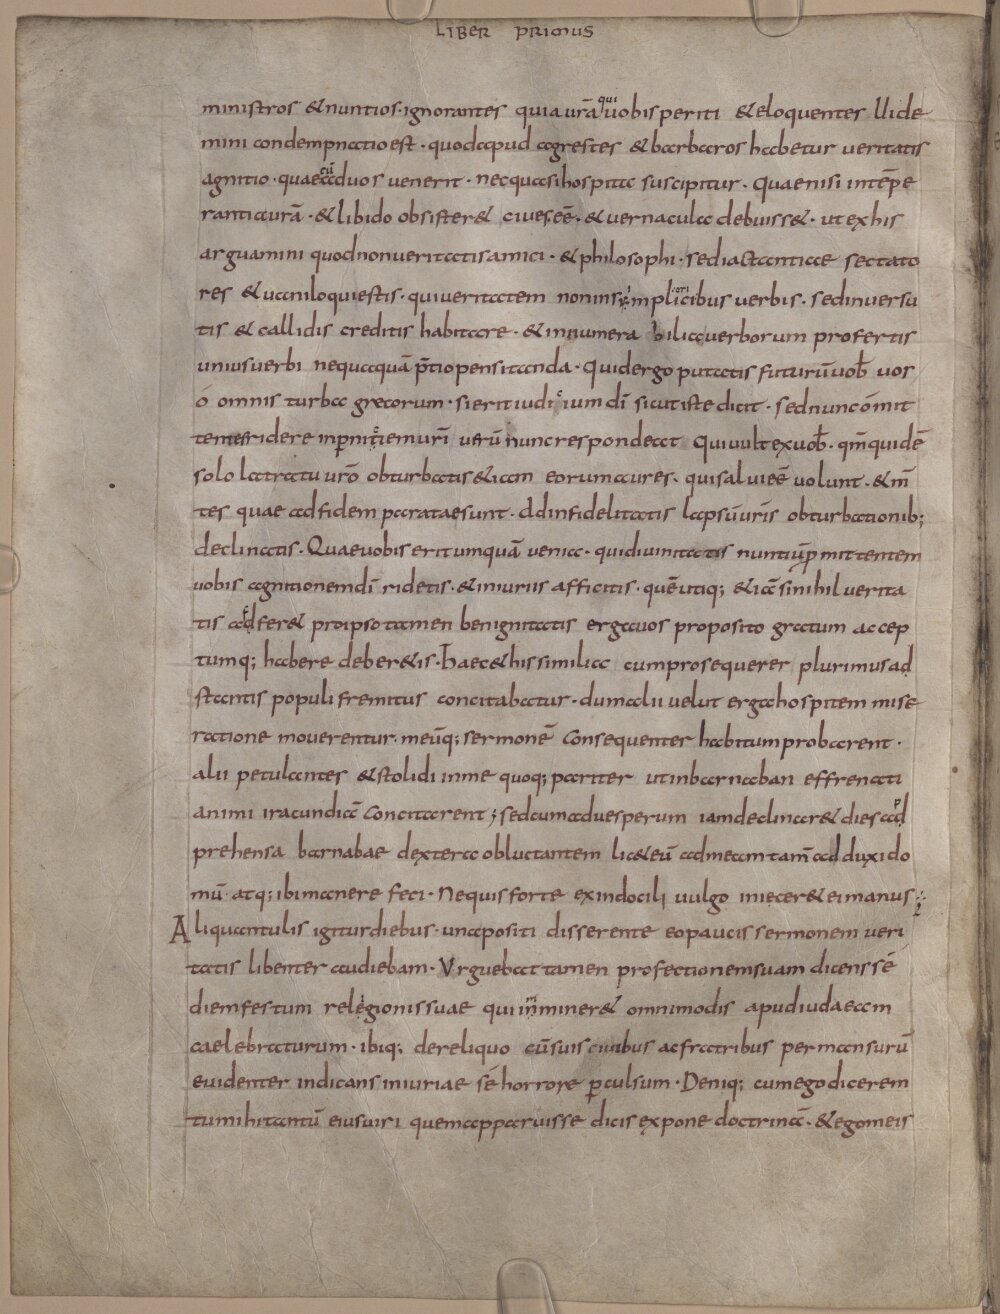 LIBER PRIMUS
ministros & nuntios· ignorantes quia urā qui uobis periti & eloquentes llide
mini condempnatio est · quod apud agrestes & barbaros habetur ueritatis
agnitio · quae cū ad uos uenerit · nec quasi hospita suscipitur · Quae nisi intēpe
rantia urā · & libido obsister& ciues· eē · & uernacula debuiss& · ut ex his
arguamini quod non ueritatis amici · & philosophi · sed iactantiae sectato
res & uaniloqui estis · qui ueritatem non in simplicioribus uerbis · sed in uersu
tis & callidis creditis habitare · & innumera bilia uerborum profertis
unius uerbi nequaquā p̄tio pensitanda · Quid ergo putatis futurū uob̄ uos
ó omnis turba grecorum · si erit iudicium dī sicut iste dicit · sed nunc omit
tentes ridere in pernitiem urī urū nunc respondeat Qui uult ex uob̄ · qm̄ quidē
solo latratu urō obturbatis & iam eorum aures · qui saluí eē uolunt · & m̄
tes quae ad fidem paratae sunt · ad infidelitatis lapsū urīs obturbationib;
declinatis · Quae uobis erit umquā uenia · qui diuinitatis nuntiū p mittentem
uobis agnitionem dī ridetis · & iniuriis afficitis · quē utiq; & iā si nihil uerita
tis adfer& pro ipso tamen benignitatis erga uos proposito gratum accep
tumq; habere deber&is · Haec & his similia cum prosequerer plurimus ad
stantis populi fremitus concitabatur · dum alii uelut erga hospitem mise
ratione mouerentur· meūq; sermonē consequenter habitum probarent ·
alii petulantes & stolidi in me quoq; pariter ut in barnaban effrenati
animi iracundiā concitarent ; sed cum ad uesperum iam declinar& dies ad
prehensa barnabae dextera obluctantem lic& eū ad meam tam̄ adduxi do
mū· atq; ibi manere feci · Ne quis forte ex indocili uulgo iniecer& ei manus ;
Aliquantulis igitur diebus · una positi disserente eo paucis sermonem ueri
tatis libenter audiebam · Urguebat tamen profectionem suam dicens sé
diem festum relegionis suae qui immíner& omnimodis apud iudaeam
caelebraturum · ibiq; dereliquo cū suis ciuibus ac fratribus permansurū
euidenter indicans iniuriae sé horrore p culsum · Deniq; cum ego dicerem
tu mihi tantū eius uiri quem apparuisse dicis expone doctrinā · & ego meis